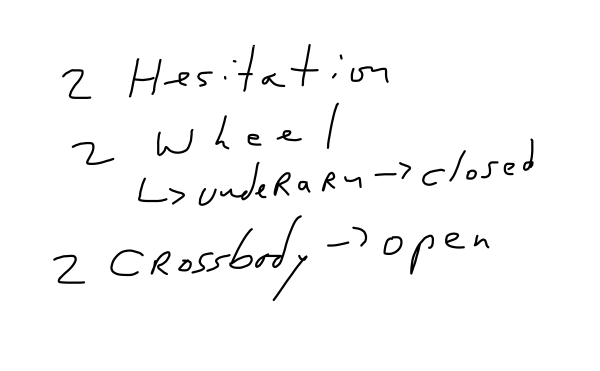 2 Hesitation
2 Wheel
↳ underarm → closed
2 Crossbody → open